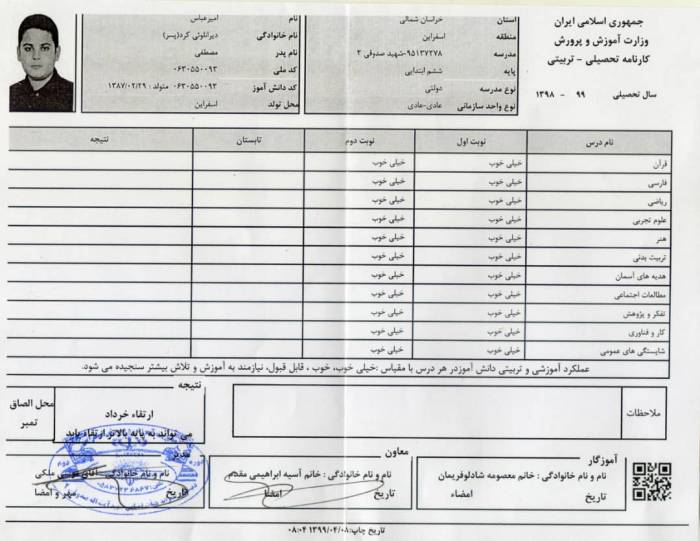 جمهوری اسلامی ایران
وزارت آموزش و پرورش
کارنامه تحصیلی - تربیتی
سال تحصیلی ۹۹ - ۱۳۹۸
استان خراسان شمالی
منطقه اسفراین
مدرسه ۹۵۱۳۷۲۷۸-شهید صدوقی ۲
پایه ششم ابتدایی
نوع مدرسه دولتی
نوع واحد سازمانی عادی-عادی
نام امیرعباس
نام خانوادگی دیرانلوئی کرد(پسر)
نام پدر مصطفی
کد ملی ۰۶۳۰۵۵۰۰۹۳
کد دانش آموز ۰۶۳۰۵۵۰۰۹۳ متولد : ۱۳۸۷/۰۲/۲۹
محل تولد اسفراین
نام درس نوبت اول نوبت دوم تابستان نتیجه
قرآن خیلی خوب خیلی خوب
فارسی خیلی خوب خیلی خوب
ریاضی خیلی خوب خیلی خوب
علوم تجربی خیلی خوب خیلی خوب
هنر خیلی خوب خیلی خوب
تربیت بدنی خیلی خوب خیلی خوب
هدیه های آسمان خیلی خوب خیلی خوب
مطالعات اجتماعی خیلی خوب خیلی خوب
تفکر و پژوهش خیلی خوب خیلی خوب
کار و فناوری خیلی خوب خیلی خوب
شایستگی های عمومی خیلی خوب خیلی خوب
عملکرد آموزشی و تربیتی دانش آموزدر هر درس با مقیاس :خیلی خوب، خوب ، قابل قبول، نیازمند به آموزش و تلاش بیشتر سنجیده می شود.
ملاحظات
نتیجه
ارتقاء خرداد
می تواند به پایه بالاتر ارتقاء یابد
محل الصاق
تمبر
آموزگار
نام و نام خانوادگی : خانم معصومه شادلوفریمان
تاریخ امضاء
معاون
نام و نام خانوادگی : خانم آسیه ابراهیمی مقدم
تاریخ امضا
مدیر
نام و نام خانوادگی : آقای ملکی
تاریخ مهر و امضا
تاریخ چاپ:۱۳۹۹/۰۴/۰۸ ۰۸:۰۴